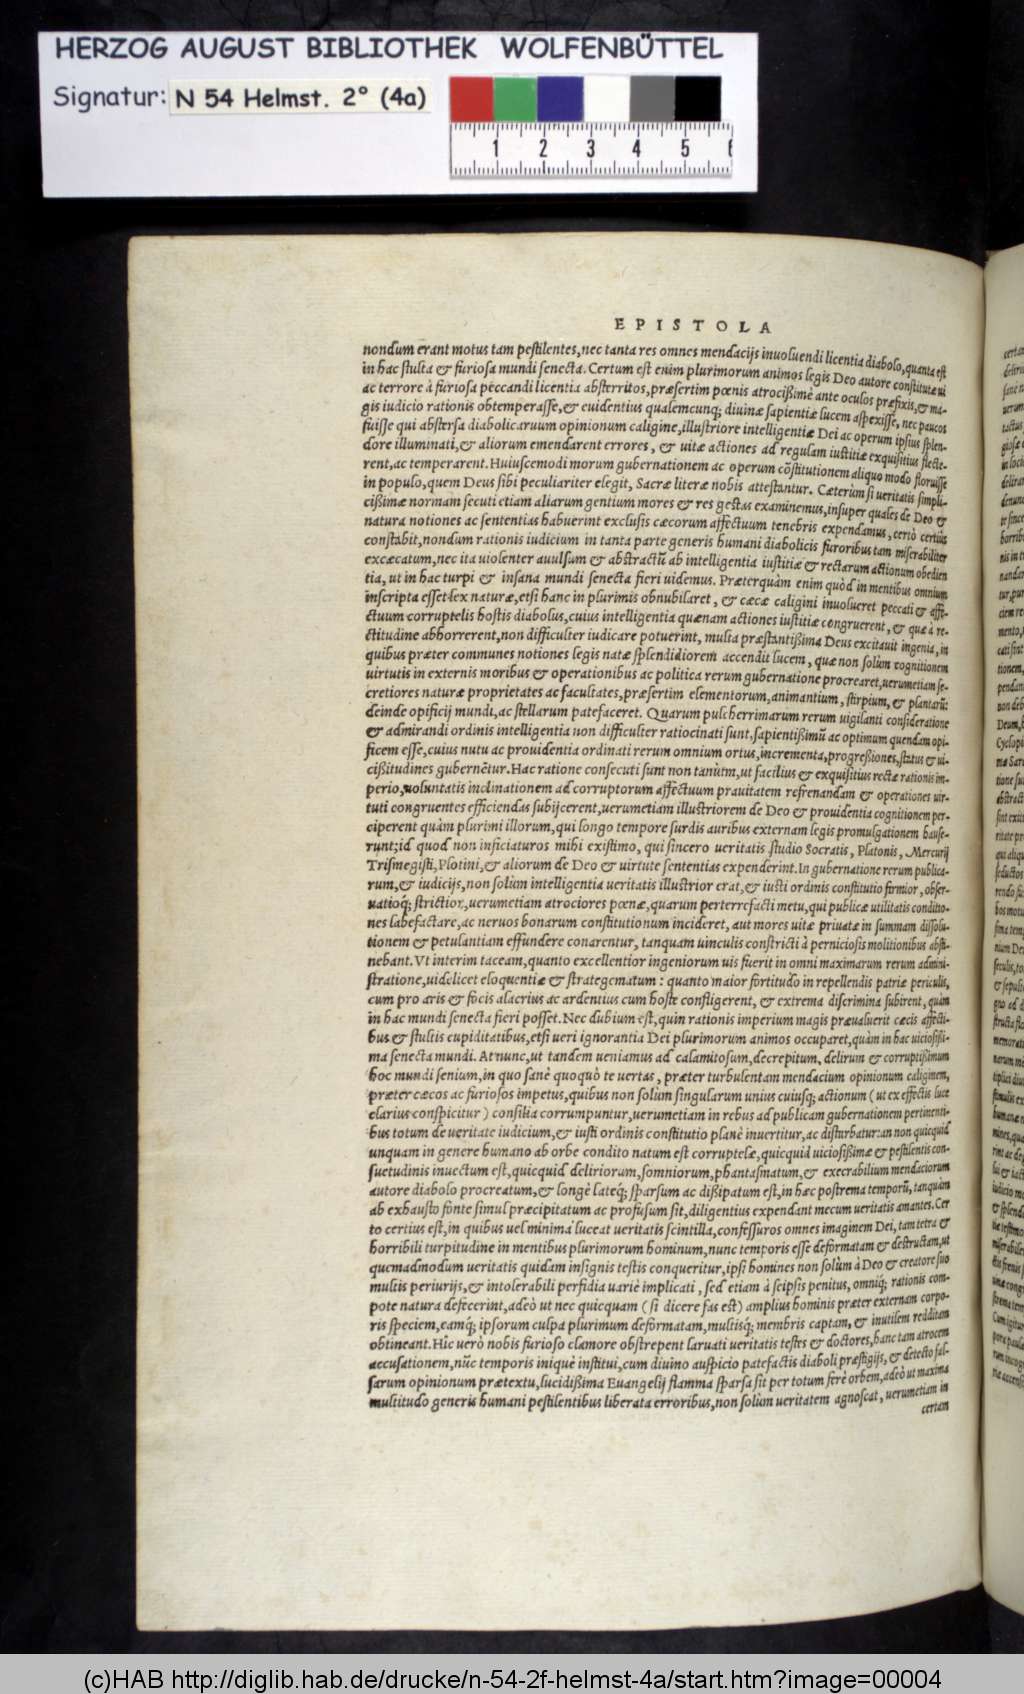 HERZOG AUGUST BIBLIOTHEK WOLFENBÜTTEL
Signatur: N 54 Helmst. 2° (4a)
1 2 3 4 5 6
EPISTOLA
nondum erant motus tam pestilentes, nec tanta res omnes mendacijs inuoluendi licentia diabolo, quanta est
in hac stulta & furiosa mundi senecta. Certum est enim plurimorum animos legis Deo autore constitutæ ui
ac terrore à furiosa peccandi licentia absterritos, præsertim pœnis atrocißimè ante oculos præfixis, & ma-
gis iudicio rationis obtemperasse, & euidentius qualemcunq; diuinæ sapientiæ lucem aspexisse, nec paucos
fuisse qui abstersa diabolicaruum opinionum caligine, illustriore intelligentiæ Dei ac operum ipsius splen-
dore illuminati, & aliorum emendarent errores, & uitæ actiones ad regulam iustitiæ exquisitius flecte-
rent, ac temperarent. Huiuscemodi morum gubernationem ac operum cōstitutionem aliquo modo floruisse
in populo, quem Deus sibi peculiariter elegit, Sacræ literæ nobis attestantur. Cæterùm si ueritatis simpli-
cißimæ normam secuti etiam aliarum gentium mores & res gestas examinemus, insuper quales de Deo &
natura notiones ac sententias habuerint exclusis cæcorum affectuum tenebris expendamus, certò certius
constabit, nondum rationis iudicium in tanta parte generis humani diabolicis furoribus tam miserabiliter
excæcatum, nec ita uiolenter auulsum & abstractū ab intelligentia iustitiæ & rectarum actionum obedien
tia, ut in hac turpi & insana mundi senecta fieri uidemus. Præterquàm enim quòd in mentibus omnium
inscripta esset lex naturæ, etsi hanc in plurimis obnubilaret, & cæcæ caligini inuolueret peccati & affe-
ctuum corruptelis hostis diabolus, cuius intelligentia quænam actiones iustitiæ congruerent, & quæ à re-
ctitudine abhorrerent, non difficulter iudicare potuerint, multa præstantißima Deus excitauit ingenia, in
quibus præter communes notiones legis natæ splendidiorem accendit lucem, quæ non solùm cognitionem
uirtutis in externis moribus & operationibus ac politica rerum gubernatione procrearet, uerumetiam se-
cretiores naturæ proprietates ac facultates, præsertim elementorum, animantium, stirpium, & plantarū:
deinde opificij mundi, ac stellarum patefaceret. Quarum pulcherrimarum rerum uigilanti consideratione
& admirandi ordinis intelligentia non difficulter ratiocinati sunt, sapientißimū ac optimum quendam opi-
ficem esse, cuius nutu ac prouidentia ordinati rerum omnium ortus, incrementa, progreßiones, status & ui-
cißitudines gubernētur. Hac ratione consecuti sunt non tanùtm, ut facilius & exquisitius rectæ rationis im-
perio, uoluntatis inclinationem ad corruptorum affectuum prauitatem refrenandam & operationes uir-
tuti congruentes efficiendas subijcerent, uerumetiam illustriorem de Deo & prouidentia cognitionem per-
ciperent quàm plurimi illorum, qui longo tempore surdis auribus externam legis promulgationem hause-
runt: id quod non inficiaturos mihi existimo, qui sincero ueritatis studio Socratis, Platonis, Mercurij
Trismegisti, Plotini, & aliorum de Deo & uirtute sententias expenderint. In gubernatione rerum publica-
rum, & iudicijs, non solùm intelligentia ueritatis illustrior erat, & iusti ordinis constitutio firmior, obser-
uatioq; strictior, uerumetiam atrociores pœnæ, quarum perterrefacti metu, qui publicæ utilitatis conditio-
nes labefactare, ac neruos bonarum constitutionum incideret, aut mores uitæ priuatæ in summam dissolu-
tionem & petulantiam effundere conarentur, tanquam uinculis constricti à perniciosis molitionibus absti-
nebant. Vt interim taceam, quanto excellentior ingeniorum uis fuerit in omni maximarum rerum admini-
stratione, uidelicet eloquentiæ & strategematum: quanto maior fortitudo in repellendis patriæ periculis,
cum pro aris & focis alacrius ac ardentius cum hoste confligerent, & extrema discrimina subirent, quàm
in hac mundi senecta fieri posset. Nec dubium est, quin rationis imperium magis præualuerit cæcis affecti-
bus & stultis cupiditatibus, etsi ueri ignorantia Dei plurimorum animos occuparet, quàm in hac uiciosißi-
ma senecta mundi. At nunc, ut tandem ueniamus ad calamitosum, decrepitum, delirum & corruptißimum
hoc mundi senium, in quo sanè quoquò te uertas, præter turbulentam mendacium opinionum caliginem,
præter cæcos ac furiosos impetus, quibus non solùm singularum unius cuiusq; actionum (ut ex effectis luce
clarius conspicitur) consilia corrumpuntur, uerumetiam in rebus ad publicam gubernationem pertinenti-
bus totum de ueritate iudicium, & iusti ordinis constitutio planè inuertitur, ac disturbatur: an non quicquid
unquam in genere humano ab orbe condito natum est corruptelæ, quicquid uiciosißimæ & pestilentis con-
suetudinis inuectum est, quicquid deliriorum, somniorum, phantasmatum, & execrabilium mendaciorum
autore diabolo procreatum, & longè lateq; sparsum ac dißipatum est, in hæc postrema temporū, tanquàm
ab exhausto fonte simul præcipitatum ac profusum sit, diligentius expendant mecum ueritatis amantes. Cer
to certius est, in quibus uel minima luceat ueritatis scintilla, confessuros omnes imaginem Dei, tam tetra &
horribili turpitudine in mentibus plurimorum hominum, nunc temporis esse deformatam & destructam, ut
quemadmodum ueritatis quidam insignis testis conqueritur, ipsi homines non solùm à Deo & creatore suo
multis periurijs, & intolerabili perfidia uariè implicati, sed etiam à seipsis penitus, omniq; rationis com-
pote natura defecerint, adeò ut nec quicquam (si dicere fas est) amplius hominis præter externam corpo-
ris speciem, eamq; ipsorum culpa plurimum deformatam, multisq; membris captam, & inutilem redditam
obtineant. Hîc uerò nobis furioso clamore obstrepent laruati ueritatis testes & doctores, hanc tam atrocem
accusationem, nūc temporis iniquè institui, cum diuino auspicio patefactis diaboli præstigijs, & detecto fal-
sarum opinionum prætextu, lucidißima Euangelij flamma sparsa sit per totum ferè orbem, adeò ut maxima
multitudo generis humani pestilentibus liberata erroribus, non solùm ueritatem agnoscat, uerumetiam in
certam
(c)HAB http://diglib.hab.de/drucke/n-54-2f-helmst-4a/start.htm?image=00004